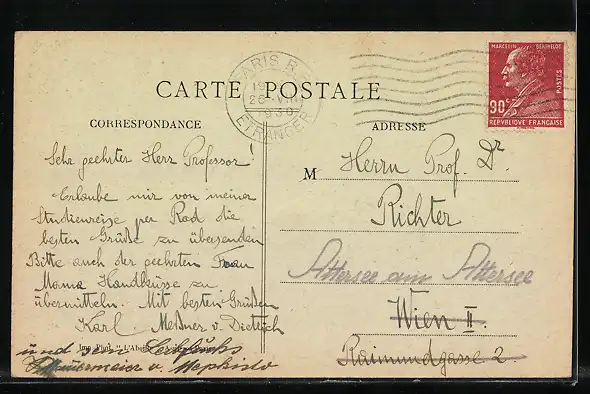 MARCELIN BERTHELOT
POSTES
90c
REPVBLIQVE FRANÇAISE
PARIS R.P.
19
26 -VII
930
ETRANGER
CARTE POSTALE
CORRESPONDANCE
ADRESSE
Sehr geehrter Herr Professor!
Erlaube mir von meiner
Studienreise per Rad die
besten Grüße zu übersenden
Bitte auch der geehrten Frau
Mama Handküsse zu
übermitteln. Mit besten Grüßen
Karl Meßner v. Dietrich
und sein
v. Mephisto
M Herrn Prof. Dr.
Richter
Attersee am Attersee
Wien II.
Raimundgasse 2